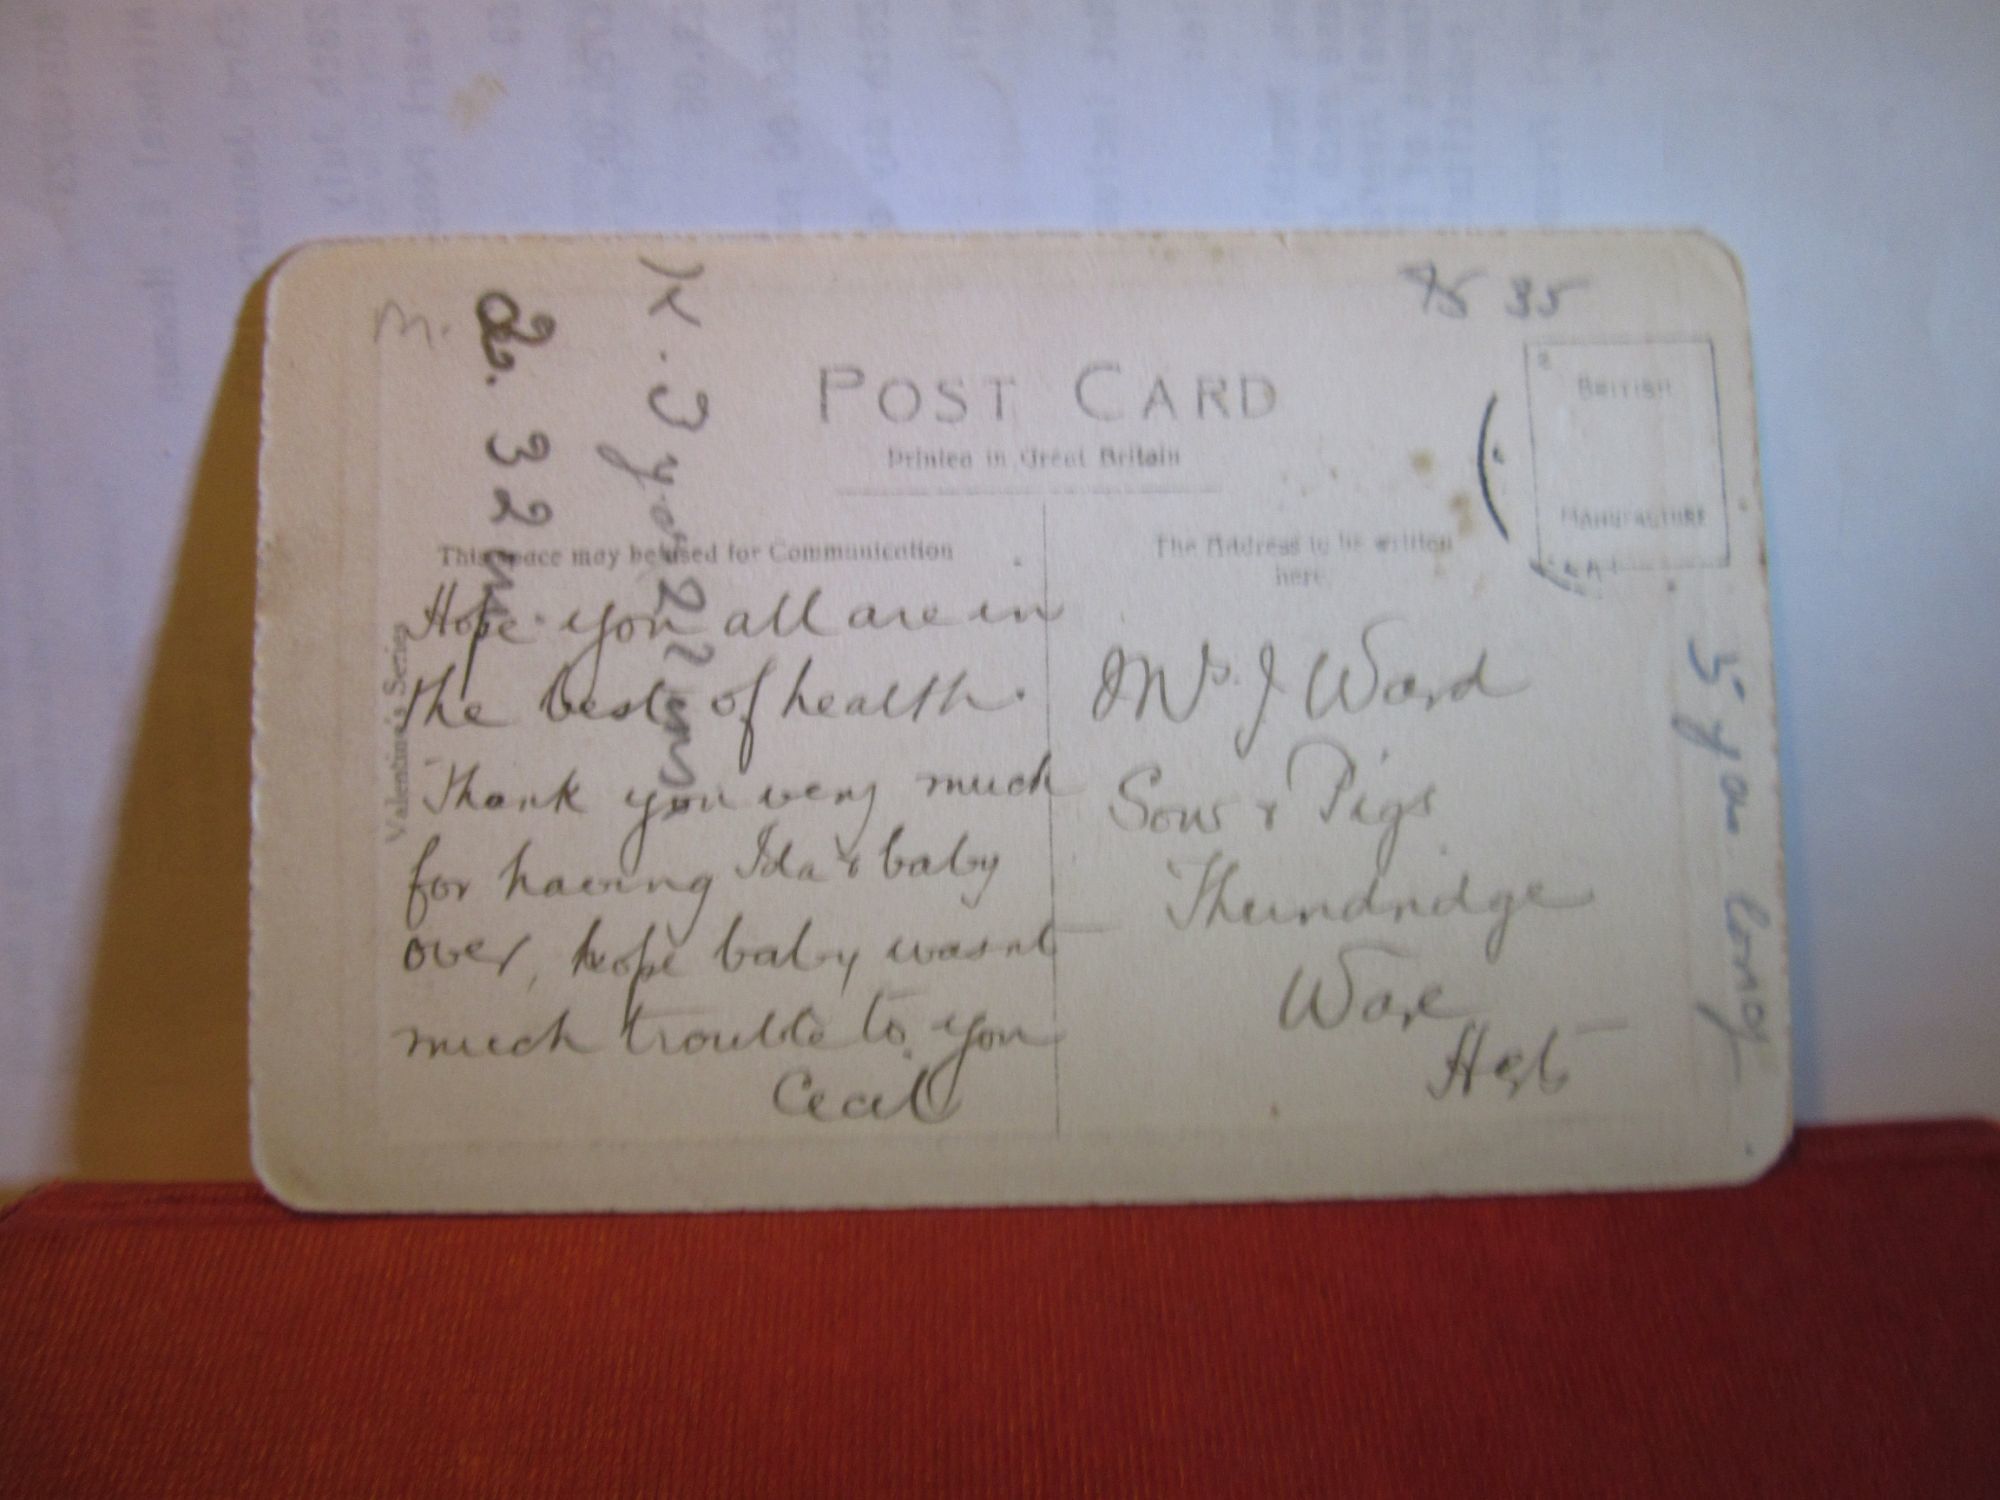 35
POST CARD
Printed in Great Britain
BRITISH
MANUFACTURE
This space may be used for Communication
The Address to be written
here
Valentine's Series
Hope you all are in
the best of health.
Thank you very much
for having Ida & baby
over, hope baby wasnt
much trouble to you
Cecil
Mrs. J Ward
Sow & Pigs
Thundridge
Ware
Herts
M.
2. 32 ins
K. 3 yds 22 ins
5 yds long